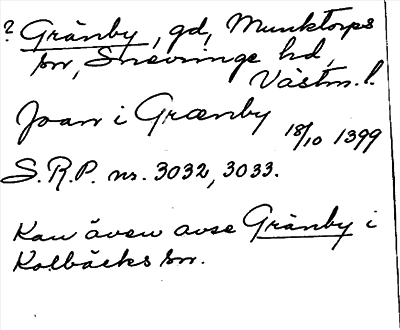 ? Gränby, gd, Munktorps
sn, Snevringe hd,
Västm. l.
Joan i Grænby
18/10 1399
S.R.P. nr. 3032, 3033.
Kan även avse Gränby i
Kolbäcks sn.